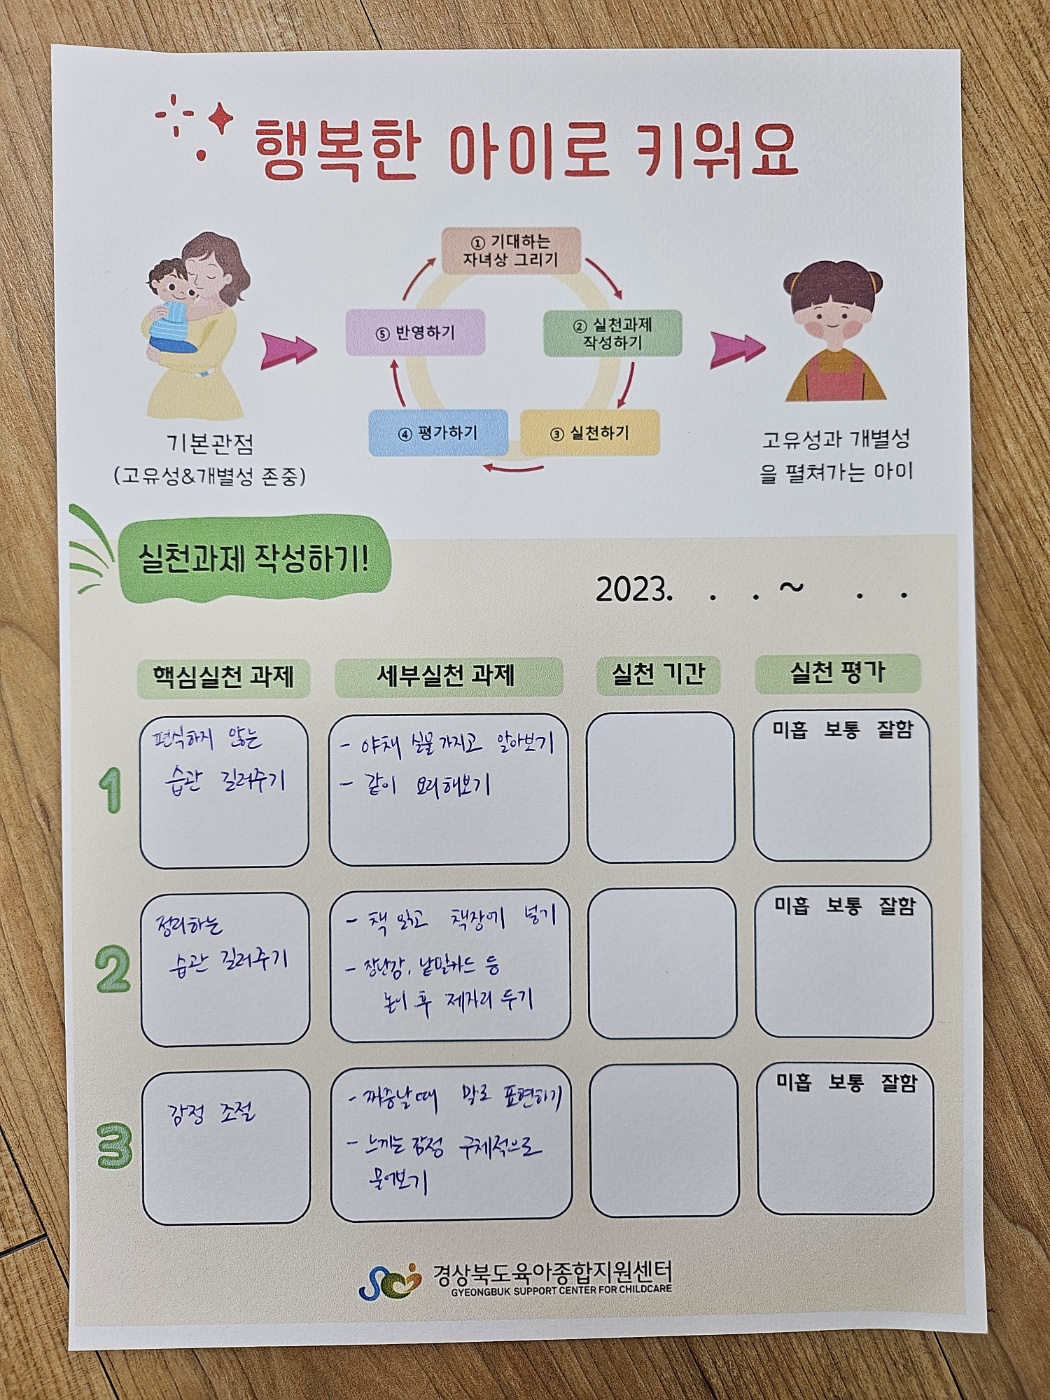 행복한 아이로 키워요
① 기대하는
자녀상 그리기
② 실천과제
작성하기
③ 실천하기
④ 평가하기
⑤ 반영하기
기본관점
(고유성&개별성 존중)
고유성과 개별성
을 펼쳐가는 아이
실천과제 작성하기!
2023. . . ~ . .
핵심실천 과제 세부실천 과제 실천 기간 실천 평가
1
편식하지 않는
습관 길러주기
- 야채 실물 가지고 알아보기
- 같이 요리해보기
미흡 보통 잘함
2
정리하는
습관 길러주기
- 책 읽고 책장에 넣기
- 장난감, 낱말카드 등
놀이 후 제자리 두기
미흡 보통 잘함
3
감정 조절
- 짜증날때 말로 표현하기
- 느끼는 감정 구체적으로
물어보기
미흡 보통 잘함
경상북도육아종합지원센터
GYEONGBUK SUPPORT CENTER FOR CHILDCARE